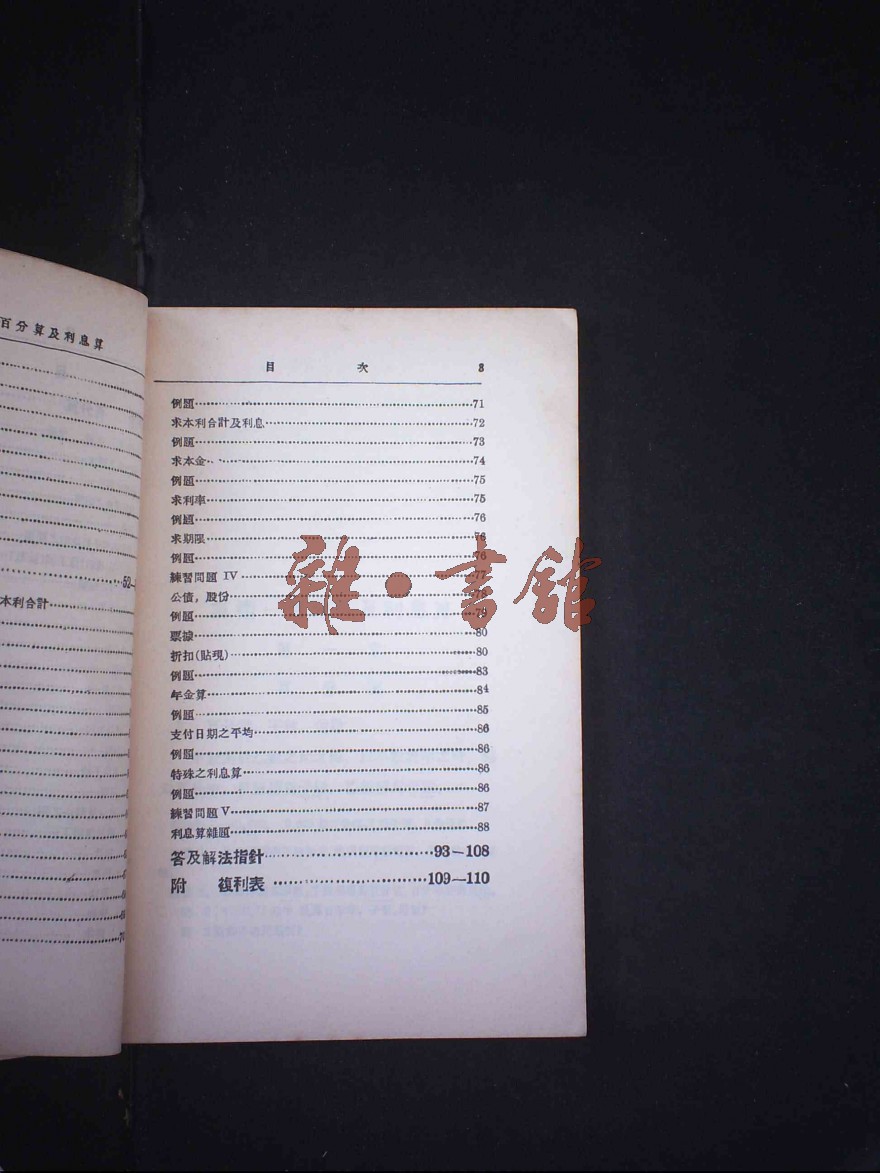 百分算及利息算
52
本利合計
目 次 3
例題 71
求本利合計及利息 72
例題 73
求本金 74
例題 75
求利率 75
例題 76
求期限 76
例題 76
練習問題 IV 77
公債，股份 78
例題 79
票據 80
折扣(貼現) 80
例題 83
年金算 84
例題 85
支付日期之平均 86
例題 86
特殊之利息算 86
例題 86
練習問題 V 87
利息算雜題 88
答及解法指針 93—108
附 複利表 109—110
雜·書館